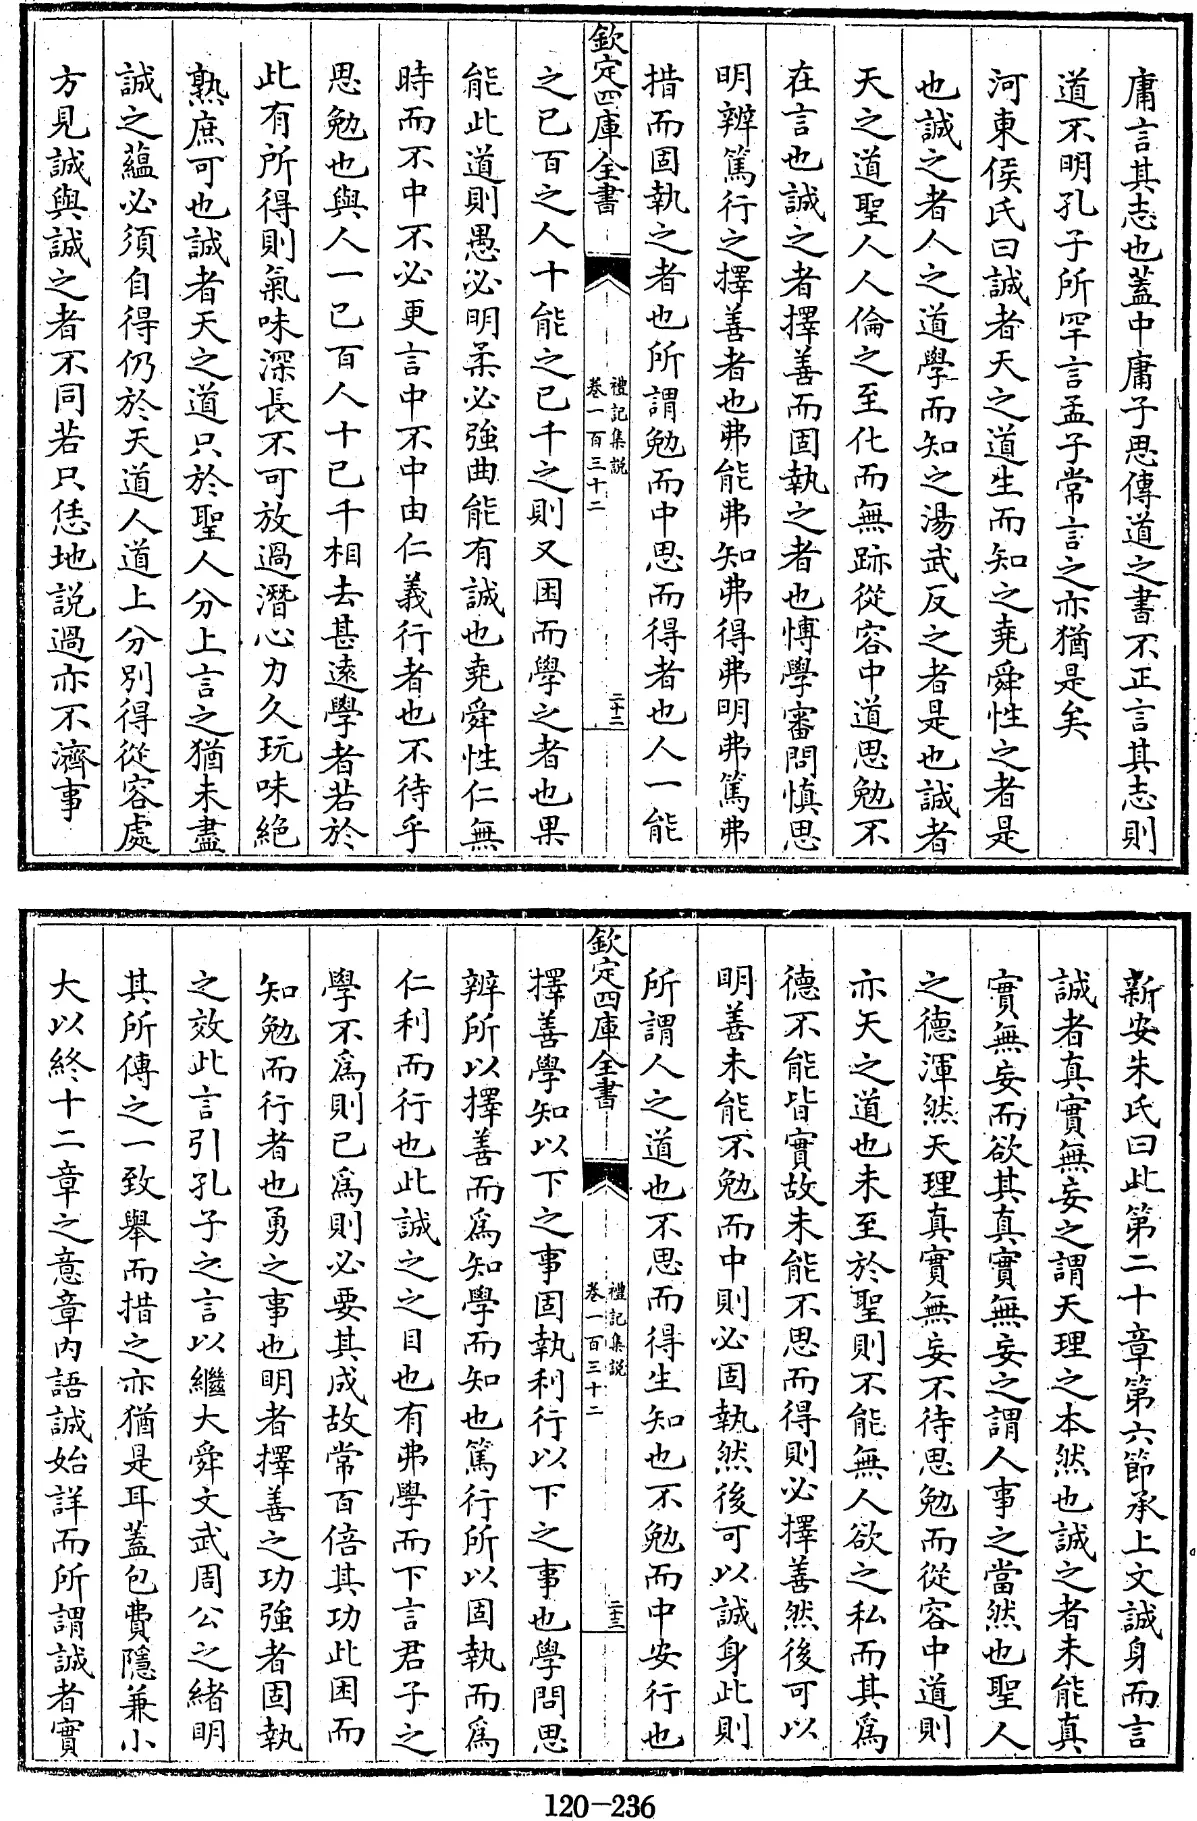 庸言其志也蓋中庸子思傳道之書不正言其志則
道不明孔子所罕言孟子常言之亦猶是矣
河東侯氏曰誠者天之道生而知之堯舜性之者是
也誠之者人之道學而知之湯武反之者是也誠者
天之道聖人人倫之至化而無跡從容中道思勉不
在言也誠之者擇善而固執之者也博學審問慎思
明辨篤行之擇善者也弗能弗知弗得弗明弗篤弗
措而固執之者也所謂勉而中思而得者也人一能
欽定四庫全書
禮記集說
卷一百三十二
二十二
之已百之人十能之已千之則又困而學之者也果
能此道則愚必明柔必強曲能有誠也堯舜性仁無
時而不中不必更言中不中由仁義行者也不待乎
思勉也與人一已百人十已千相去甚遠學者若於
此有所得則氣味深長不可放過潛心力久玩味絕
熟庶可也誠者天之道只於聖人分上言之猶未盡
誠之蘊必須自得仍於天道人道上分別得從容處
方見誠與誠之者不同若只恁地說過亦不濟事
新安朱氏曰此第二十章第六節承上文誠身而言
誠者真實無妄之謂天理之本然也誠之者未能真
實無妄而欲其真實無妄之謂人事之當然也聖人
之德渾然天理真實無妄不待思勉而從容中道則
亦天之道也未至於聖則不能無人欲之私而其為
德不能皆實故未能不思而得則必擇善然後可以
明善未能不勉而中則必固執然後可以誠身此則
所謂人之道也不思而得生知也不勉而中安行也
欽定四庫全書
禮記集說
卷一百三十二
二十三
擇善學知以下之事固執利行以下之事也學問思
辨所以擇善而為知學而知也篤行所以固執而為
仁利而行也此誠之之目也有弗學而下言君子之
學不為則已為則必要其成故常百倍其功此困而
知勉而行者也勇之事也明者擇善之功強者固執
之效此言引孔子之言以繼大舜文武周公之緒明
其所傳之一致舉而措之亦猶是耳蓋包費隱兼小
大以終十二章之意章內語誠始詳而所謂誠者實
120-236